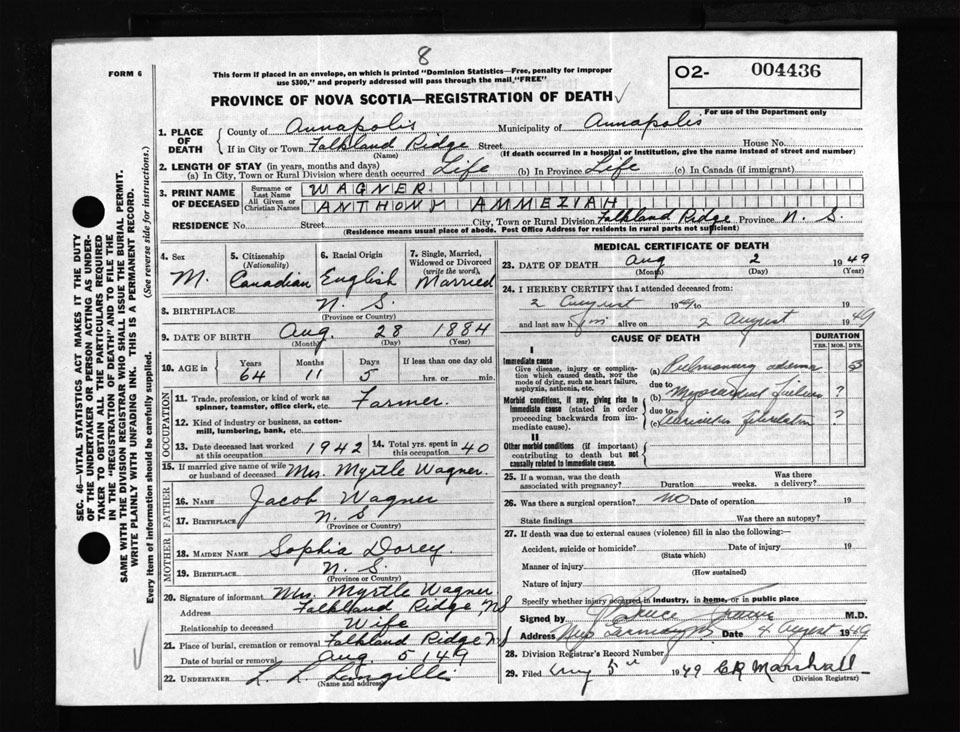 8
FORM 6
This form if placed in an envelope, on which is printed "Dominion Statistics—Free, penalty for improper
use $300," and properly addressed will pass through the mail, "FREE"
O2- 004436
For use of the Department only
PROVINCE OF NOVA SCOTIA—REGISTRATION OF DEATH ✓
SEC. 46—VITAL STATISTICS ACT MAKES IT THE DUTY
OF THE UNDERTAKER OR PERSON ACTING AS UNDER-
TAKER TO OBTAIN ALL THE PARTICULARS REQUIRED
IN THE "REGISTRATION OF DEATH" AND TO FILE THE
SAME WITH THE DIVISION REGISTRAR WHO SHALL ISSUE THE BURIAL PERMIT.
WRITE PLAINLY WITH UNFADING INK. THIS IS A PERMANENT RECORD.
Every item of information should be carefully supplied. (See reverse side for instructions.)
1. PLACE OF DEATH
County of Annapolis Municipality of Annapolis
If in City or Town Falkland Ridge Street House No.
(Name) (If death occurred in a hospital or institution, give the name instead of street and number)
2. LENGTH OF STAY (in years, months and days)
(a) In City, Town or Rural Division where death occurred Life (b) In Province Life (c) In Canada (if immigrant)
3. PRINT NAME OF DECEASED
Surname or Last Name WAGNER
All Given or Christian Names ANTHONY AMMEZIAH
RESIDENCE No. Street City, Town or Rural Division Falkland Ridge Province N. S.
(Residence means usual place of abode. Post Office Address for residents in rural parts not sufficient)
4. Sex M.
5. Citizenship (Nationality) Canadian
6. Racial Origin English
7. Single, Married, Widowed or Divorced (write the word) Married
8. BIRTHPLACE N. S.
(Province or Country)
9. DATE OF BIRTH Aug. 28 1884
(Month) (Day) (Year)
10. AGE in Years 64 Months 11 Days 5 If less than one day old hrs. or min.
OCCUPATION
11. Trade, profession, or kind of work as spinner, teamster, office clerk, etc. Farmer.
12. Kind of industry or business, as cotton-mill, lumbering, bank, etc.
13. Date deceased last worked at this occupation 1942
14. Total yrs. spent in this occupation 40
15. If married give name of wife or husband of deceased Mrs. Myrtle Wagner.
FATHER
16. NAME Jacob Wagner
17. BIRTHPLACE N. S.
(Province or Country)
MOTHER
18. MAIDEN NAME Sophia Dorey.
19. BIRTHPLACE N. S.
(Province or Country)
20. Signature of informant Mrs. Myrtle Wagner
Address Falkland Ridge NS
Relationship to deceased Wife
21. Place of burial, cremation or removal Falkland Ridge N S
Date of burial or removal Aug. 5 149
22. UNDERTAKER L. L. Langille
(Name and address)
MEDICAL CERTIFICATE OF DEATH
23. DATE OF DEATH Aug 2 1949
(Month) (Day) (Year)
24. I HEREBY CERTIFY that I attended deceased from:
2 August 1949 to 19
and last saw him alive on 2 August 1949
CAUSE OF DEATH
DURATION
YRS. MOS. DYS.
I
Immediate cause
Give disease, injury or complication which caused death, not the mode of dying, such as heart failure, asphyxia, asthenia, etc.
(a) Pulmonary edema
due to
Morbid conditions, if any, giving rise to immediate cause (stated in order proceeding backwards from immediate cause).
(b) Myocardial Failure ?
due to
(c) Auricular fibrillation ?
II
Other morbid conditions (if important) contributing to death but not causally related to immediate cause.
25. If a woman, was the death associated with pregnancy? Duration weeks. Was there a delivery?
26. Was there a surgical operation? NO Date of operation 19
State findings Was there an autopsy?
27. If death was due to external causes (violence) fill in also the following:—
Accident, suicide or homicide? Date of injury 19
(State which)
Manner of injury
(How sustained)
Nature of injury
Specify whether injury occurred in industry, in home, or in public place
Signed by M.D.
Address New Germany NS Date 4 August 1949
28. Division Registrar's Record Number
29. Filed Aug 5th 1949 CR Marshall
(Division Registrar)